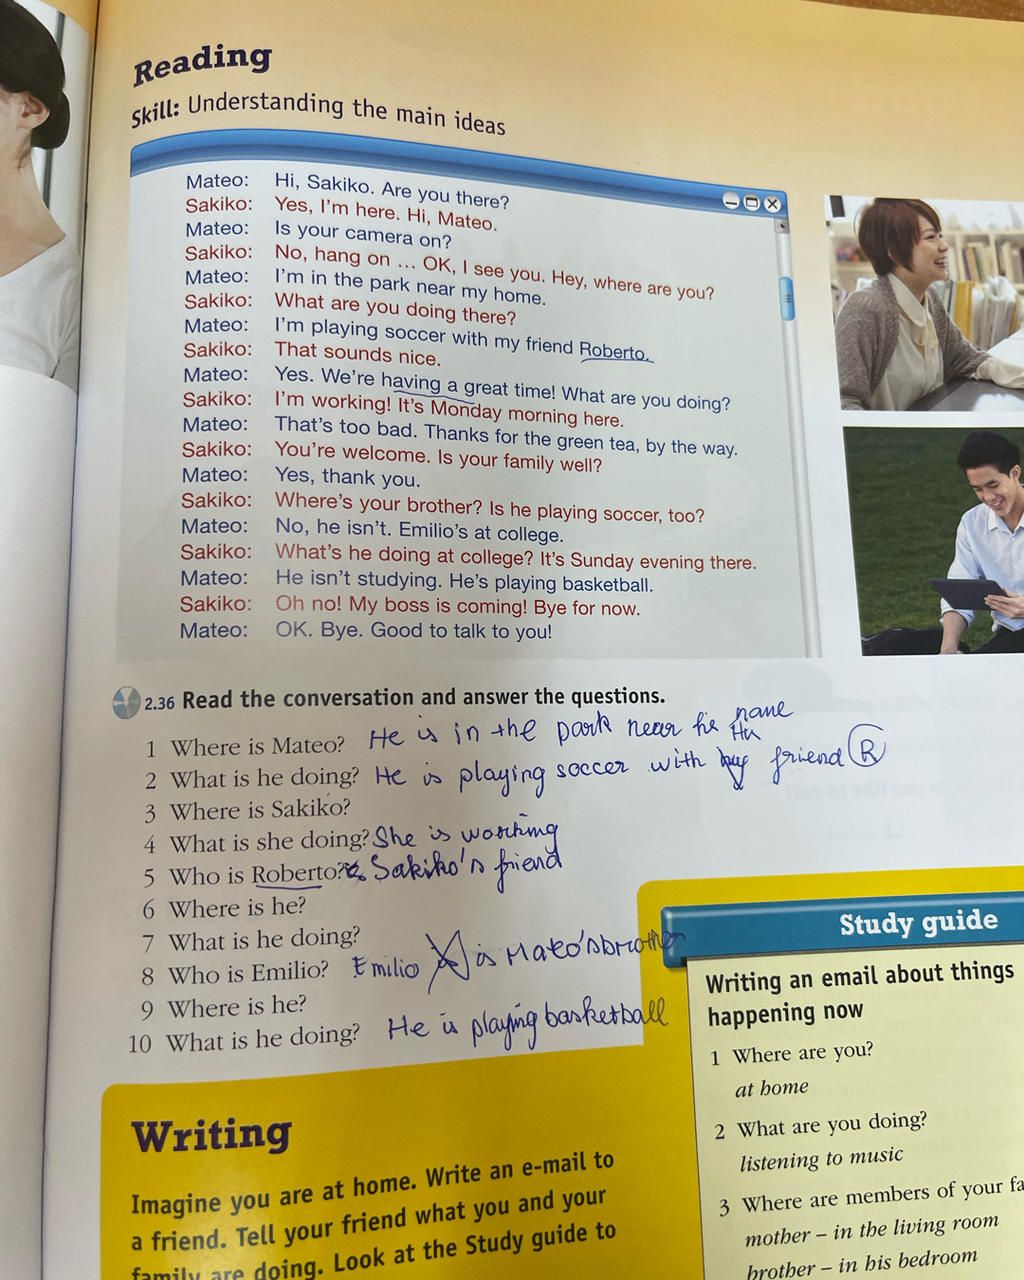 Reading
Skill: Understanding the main ideas
Mateo: Hi, Sakiko. Are you there?
Sakiko: Yes, I'm here. Hi, Mateo.
Mateo: Is your camera on?
Sakiko: No, hang on ... OK, I see you. Hey, where are you?
Mateo: I'm in the park near my home.
Sakiko: What are you doing there?
Mateo: I'm playing soccer with my friend Roberto.
Sakiko: That sounds nice.
Mateo: Yes. We're having a great time! What are you doing?
Sakiko: I'm working! It's Monday morning here.
Mateo: That's too bad. Thanks for the green tea, by the way.
Sakiko: You're welcome. Is your family well?
Mateo: Yes, thank you.
Sakiko: Where's your brother? Is he playing soccer, too?
Mateo: No, he isn't. Emilio's at college.
Sakiko: What's he doing at college? It's Sunday evening there.
Mateo: He isn't studying. He's playing basketball.
Sakiko: Oh no! My boss is coming! Bye for now.
Mateo: OK. Bye. Good to talk to you!
2.36 Read the conversation and answer the questions.
1 Where is Mateo? He is in the park near his
2 What is he doing? He is playing soccer with friend R
3 Where is Sakiko?
4 What is she doing? She is working
5 Who is Roberto? Sakiko's friend
6 Where is he?
7 What is he doing?
8 Who is Emilio? Emilio is Mateo's brother
9 Where is he?
10 What is he doing? He is playing basketball
Writing
Imagine you are at home. Write an e-mail to
a friend. Tell your friend what you and your
family are doing. Look at the Study guide to
Study guide
Writing an email about things
happening now
1 Where are you?
at home
2 What are you doing?
listening to music
3 Where are members of your fa
mother – in the living room
brother – in his bedroom